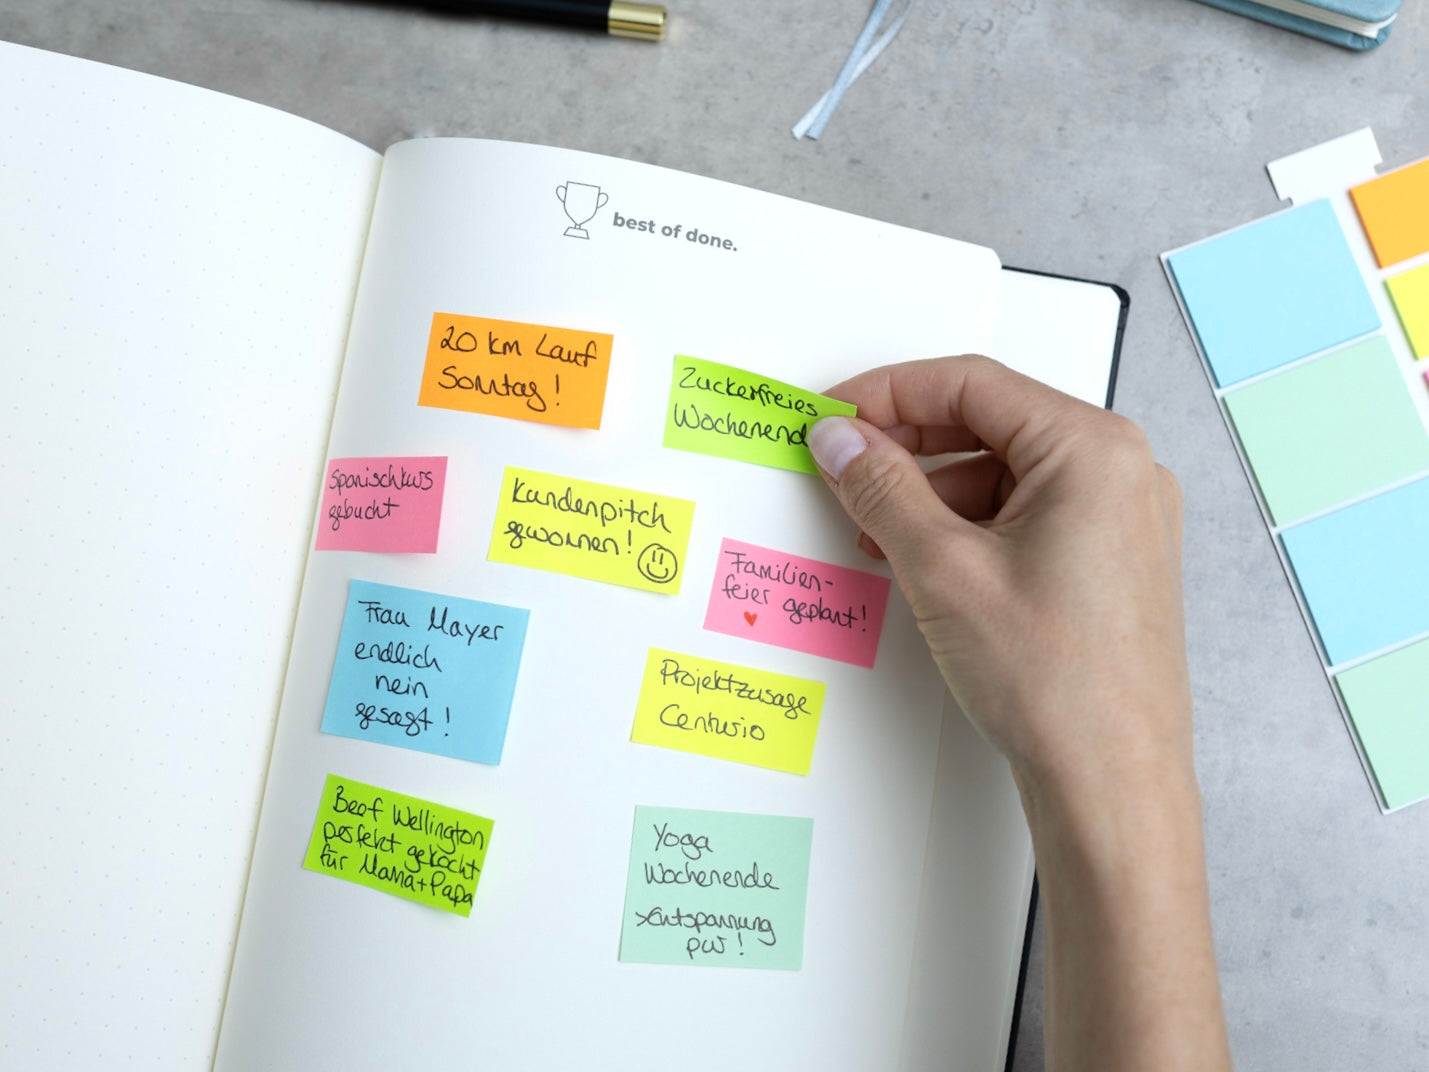 best of done.
20 km Lauf
Sonntag!
Zuckerfreies
Wochenend
Spanischkurs
gebucht
Kundenpitch
gewonnen!
Familien-
feier geplant!
Frau Mayer
endlich
nein
gesagt!
Projektzusage
Centurio
Beef Wellington
perfekt gekocht
für Mama+Papa
Yoga
Wochenende
>Entspannung
pur!